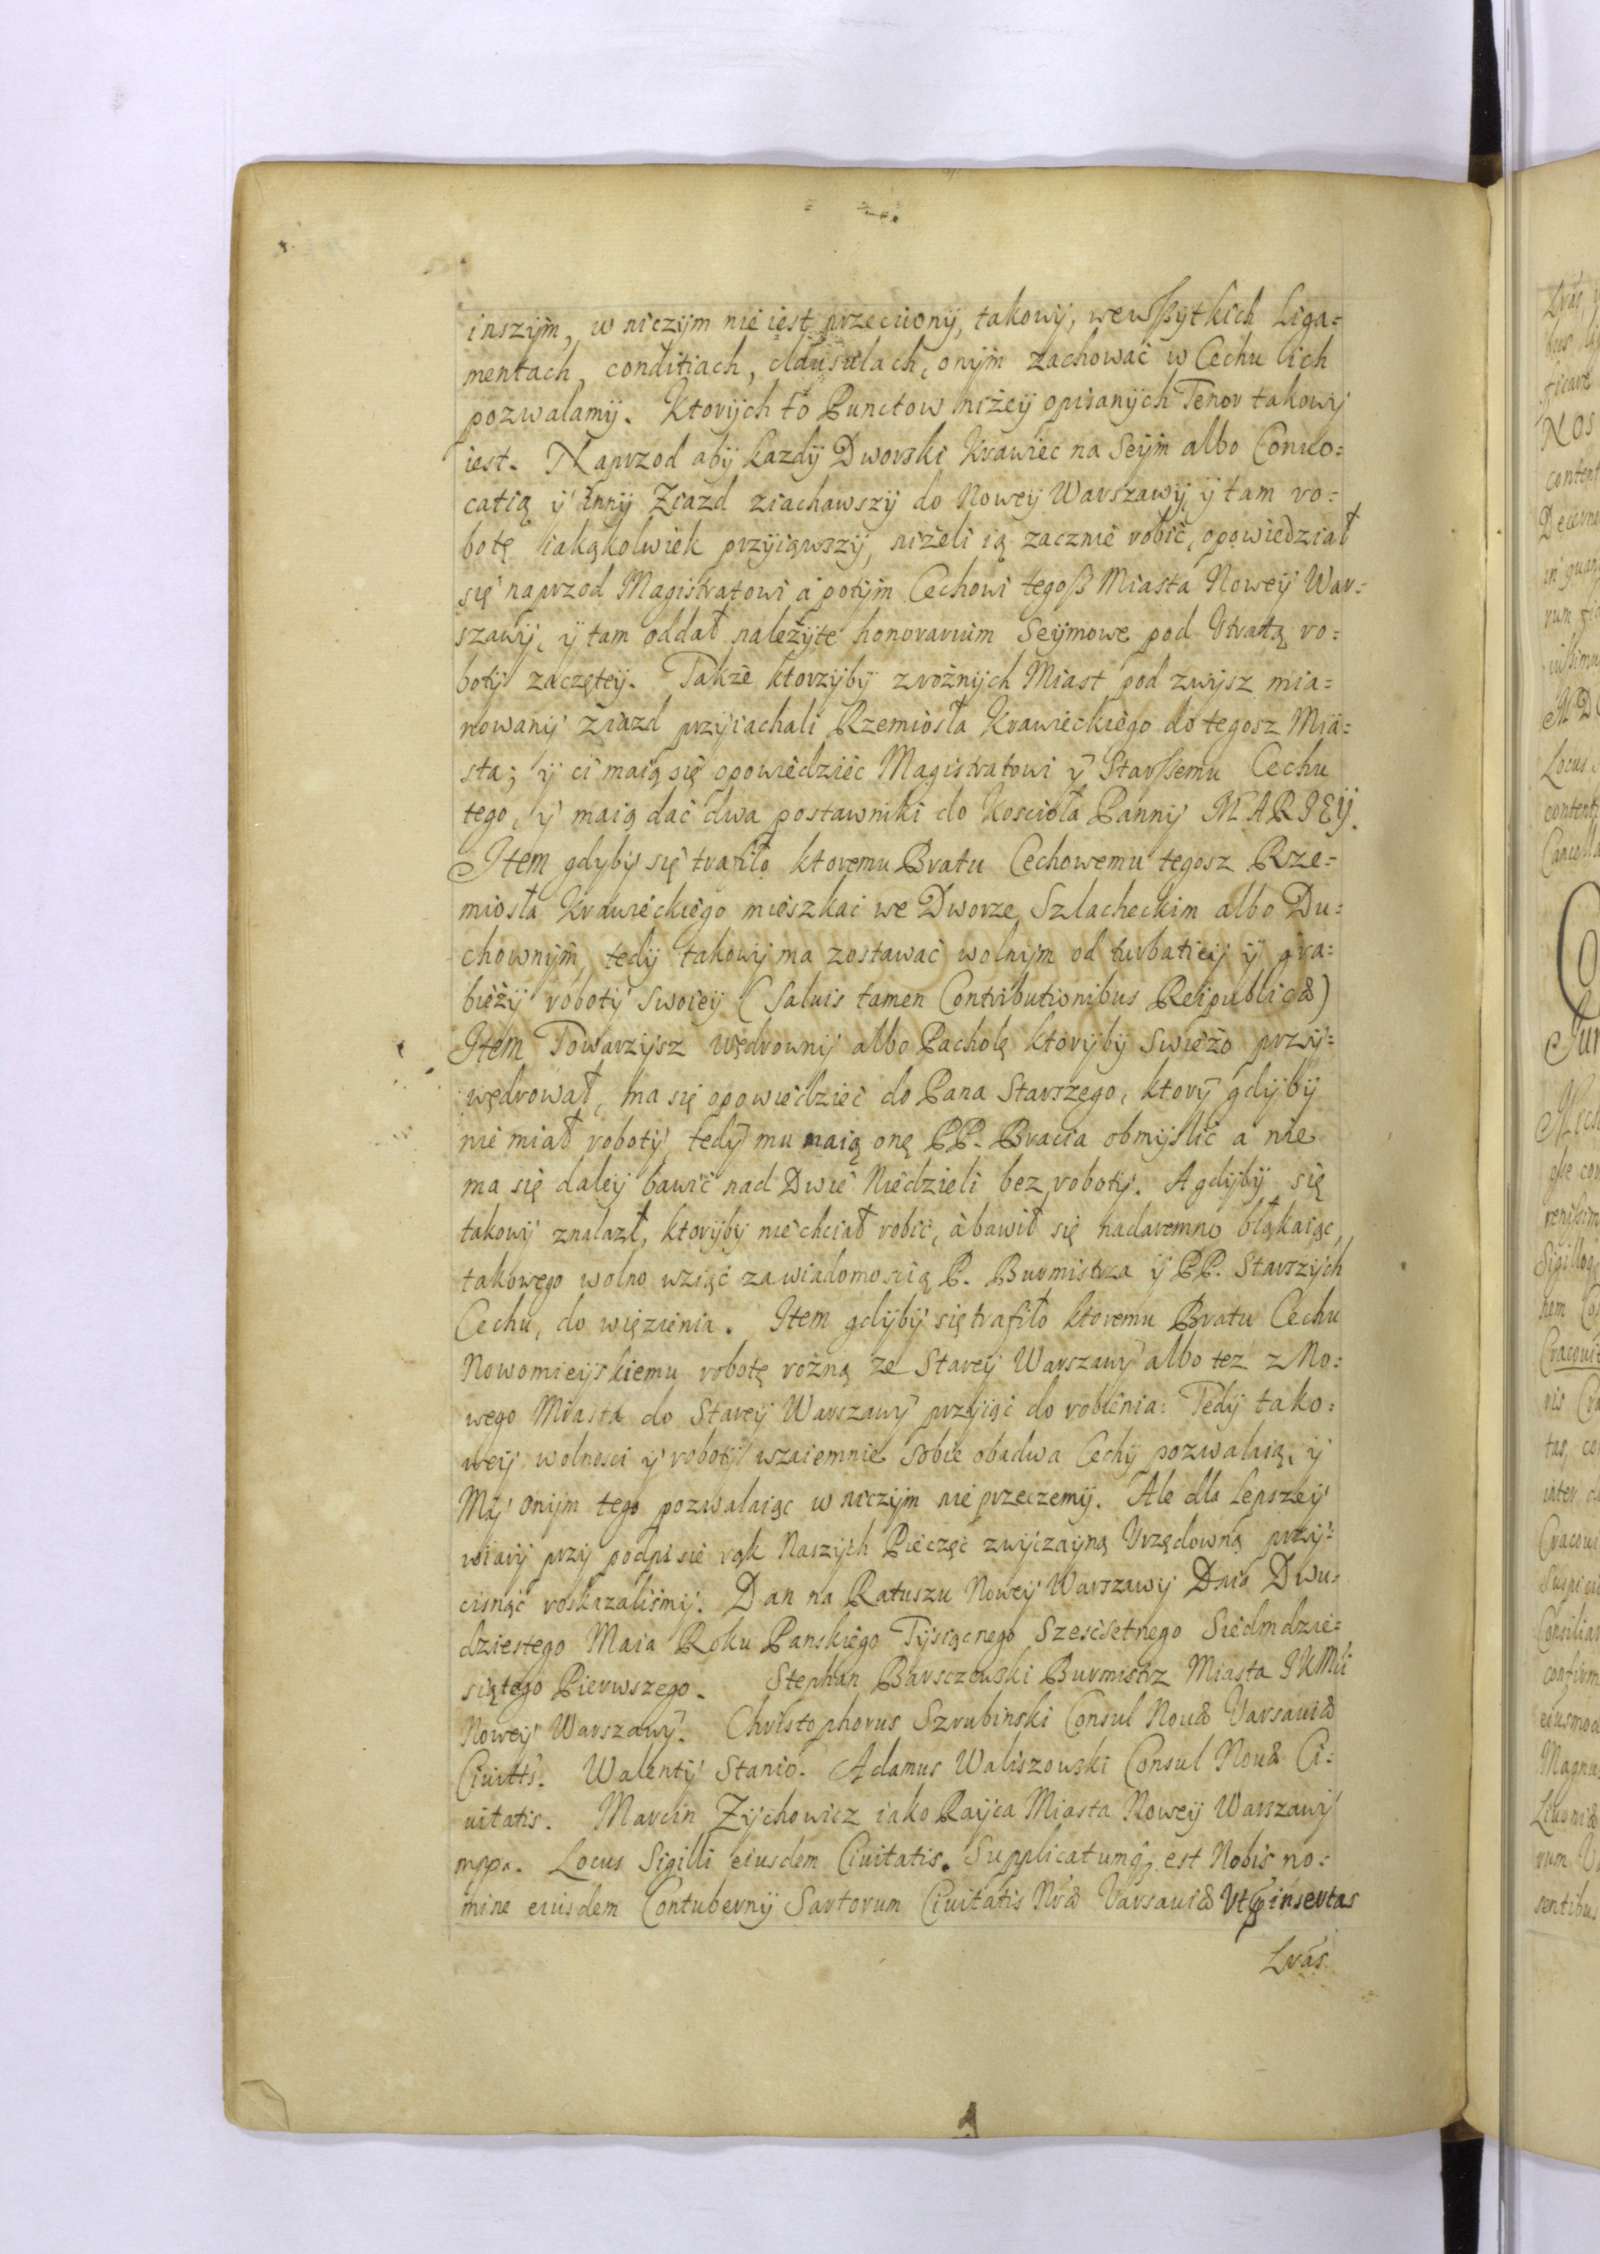 inszÿm, w niczÿm nie iest przeciwnÿ, takowÿ, wewszÿtkich Liga=
mentach, conditiach, clausulach, onÿm zachować w Cechu ich
pozwalamÿ. Ktorÿch to Punctow niżeÿ opisanÿch Tenor takowÿ
iest. Naprzod abÿ każdÿ Dworski Krawiec na Seÿm albo Conuo=
catią ÿ innÿ Ziazd ziachawszÿ do Noweÿ Warszawÿ, ÿ tam ro=
botę iakąkolwiek przÿiąwszÿ, niżeli ią zacznie robić, opowiedział
się naprzod Magistratowi a potÿm Cechowi tegosz Miasta Noweÿ War=
szawÿ, ÿ tam oddał należÿte honorarium Seÿmowe pod Utratą ro=
botÿ zaczęteÿ. Także ktorzÿbÿ z rożnÿch Miast pod zwÿsz mia=
nowanÿ ziazd przÿiachali Rzemiosła Krawieckiego do tegosz Mia=
sta; ÿ ci maią się opowiedzieć Magistratowi ÿ Starszemu Cechu
tego, ÿ maią dać dwa postawniki do Koscioła Pannÿ MARIEÿ.
Item gdybÿ się trafiło ktoremu Bratu Cechowemu tegosz Rze=
miosła Krawieckiego mieszkać we Dworze Szlacheckim albo Du=
chownÿm, tedÿ takowÿ ma zostawać wolnÿm od turbatieÿ ÿ gra=
bieżÿ robotÿ swoieÿ (Saluis tamen Contributionibus Reipublicæ)
Item Towarzÿsz wędrownÿ albo Pacholę ktorÿbÿ swieżo przÿ=
wędrował, ma się opowiedzieć do Pana Starszego, ktorÿ gdÿbÿ
nie miał robotÿ, tedÿ mu maią onę PP. Bracia obmÿslić a nie
ma się daleÿ bawić nad Dwie Niedzieli bez robotÿ. A gdÿbÿ się
takowÿ znalazł, ktorÿbÿ nie chciał robić, a bawił się nadaremno błąkaiąc,
takowego wolno wziąć za wiadomoscią P. Burmistrza ÿ PP. Starszÿch
Cechu, do więzienia. Item gdÿbÿ się trafiło ktoremu Bratu Cechu
Nowomieÿskiemu robotę rożną ze Stareÿ Warszawÿ albo tez z No=
wego Miasta do Stareÿ Warszawÿ przÿiąć do robienia: Tedÿ tako=
weÿ wolnosci ÿ robotÿ wzaiemnie sobie obadwa Cechÿ pozwalaią, ÿ
Mÿ onÿm tego pozwalaiąc w niczÿm nie przeczemÿ. Ale dla lepszeÿ
wiarÿ przÿ podpisie rąk Naszÿch Pieczęć zwÿczaÿną Vrzędowną przÿ=
cisnąć roskazalismÿ. Dan na Ratuszu Noweÿ Warszawÿ Dnia Dwu=
dziestego Maia Roku Panskiego Tÿsiącnego Szescsetnego Siedmdzie=
siątego Pierwszego. Stephan Barsczewski Burmistrz Miasta JKMci
Noweÿ Warszawÿ. Christophorus Szrubinski Consul Nouæ Varsauiæ
Ciuitts. Walentÿ Stanio. Adamus Waliszowski Consul Nouæ Ci=
uitatis. Marcin Zÿchowicz iako Raÿca Miasta Noweÿ Warszawÿ
mpp. Locus Sigilli eiusdem Ciuitatis. Supplicatumq; est Nobis no=
mine eiusdem Contubernÿ Sartorum Ciuitatis Nræ Varsauiæ Vt insertas
Lras